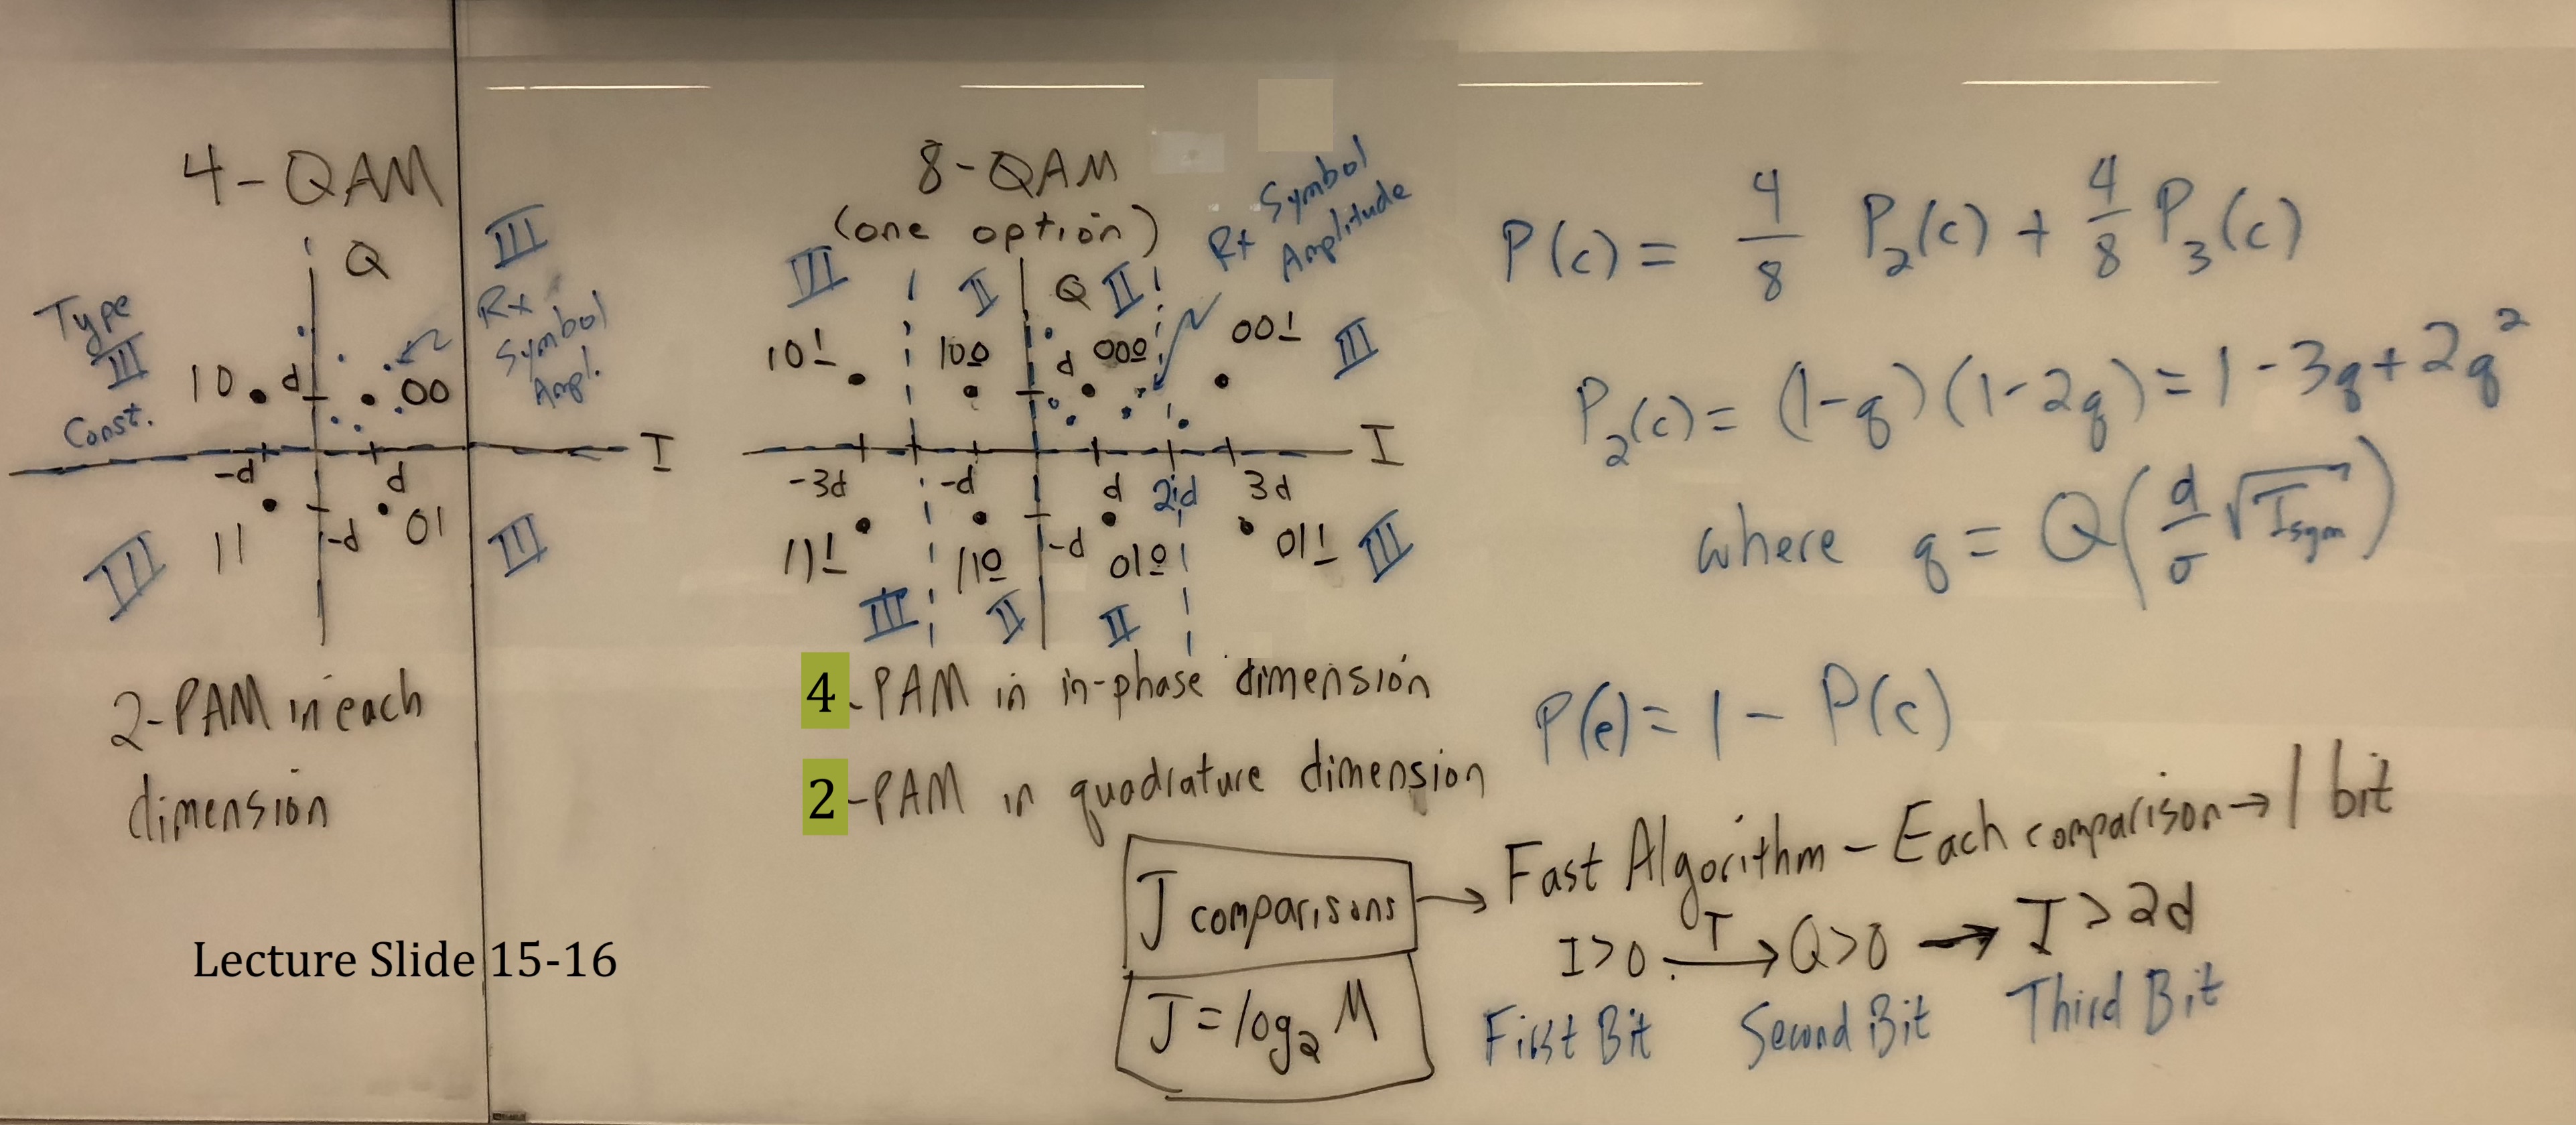 4-QAM
Q
III
Type
III
Const.
Rx
Symbol
Ampl.
10
d
00
I
-d
d
11
-d
01
III
III
2-PAM in each
dimension
Lecture Slide 15-16
8-QAM
(one option)
Rx Symbol
Amplitude
III
II
Q
II
101
100
d
000
001
III
I
-3d
-d
d
2d
3d
111
110
-d
010
011
III
III
II
II
4-PAM in in-phase dimension
2-PAM in quadrature dimension
J comparisons
J = log₂ M
P(c) = 4/8 P₂(c) + 4/8 P₃(c)
P₂(c) = (1-q)(1-2q) = 1-3q+2q²
where q = Q(d/σ √Tsym)
P(e) = 1 - P(c)
Fast Algorithm - Each comparison → 1 bit
I>0 T→ Q>0 → I>2d
First Bit Second Bit Third Bit